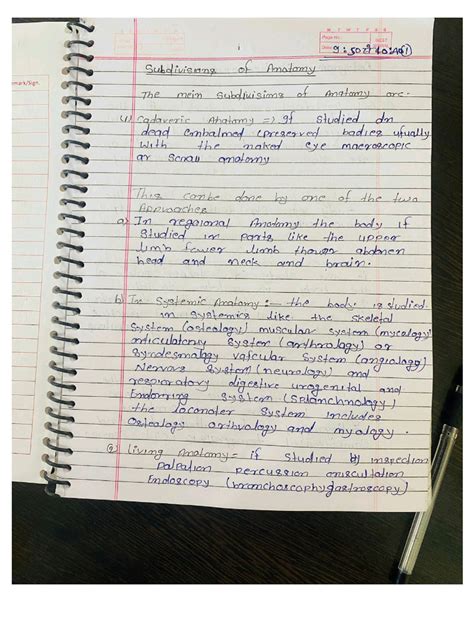 mark/Sign.
Page No.:
Date: 9:50 to 10:40
Subdivisions of Anatomy
The mein Subdivisions of Anatomy are.
(1) Cadaveric Anatomy => If studied on
dead embalmed (preserved bodies usually
with the naked eye macroscopic
or Scroll anatomy
This canbe done by one of the two
Approaches
a) In regaional Anatomy the body if
Studied in parts like the upper
limb fower limb thower abdonen
head and neck and brain.
b) In Systemic Anatomy :- the body is studied
in systemics like the skeletal
System (astealogy) muscular system (mycalogy)
articulatony System (arthrology) or
Syndesmalagy vafcular System (angialogy)
Nervors System (neurology) and
respiratory digestive urogenital and
Endorring System (Splanchnology)
the locomater System includes
Ostealogy arthrology and myalogy.
(2) Living Anatomy= if Studied by inspection
palpation percussion auscultation
Endoscopy (bronchoscophy gastroscopy)